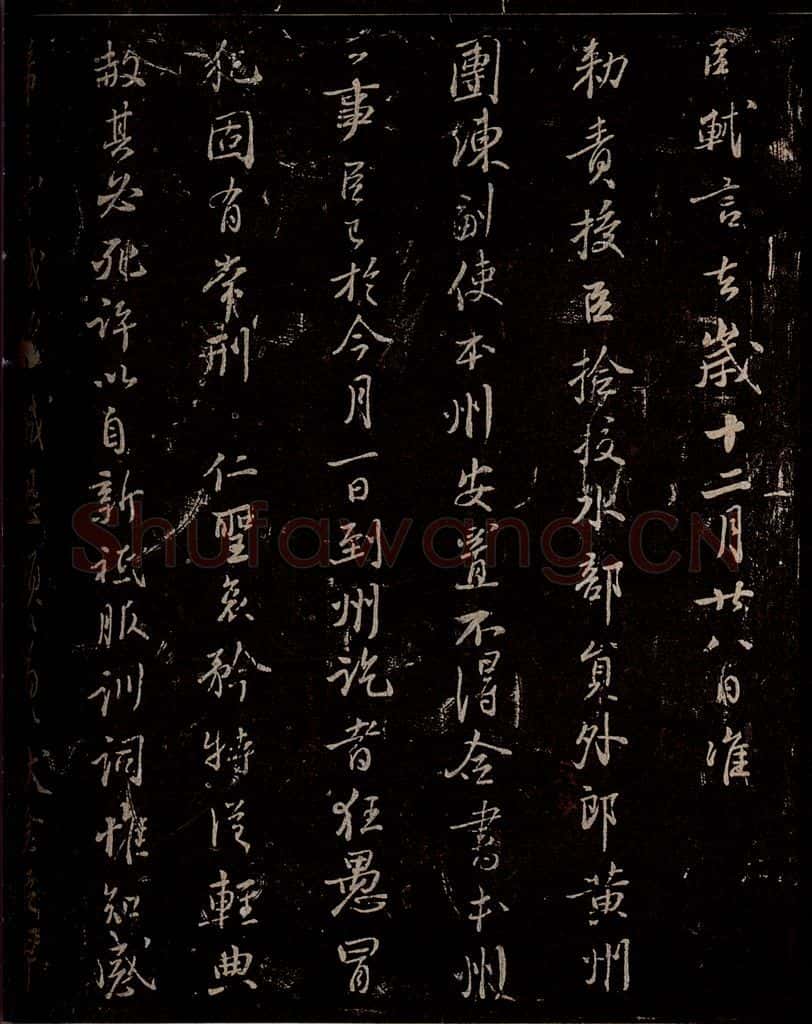 臣軾言去歲十二月廿八日准
勅責授臣撿挍水部員外郎黄州
團練副使本州安置不得僉書本州
公事臣已於今月一日到州訖者狂愚冒
犯固有常刑 仁聖哀矜特從輕典
赦其必死許以自新祗服訓詞惟知感
Shufawang.CN